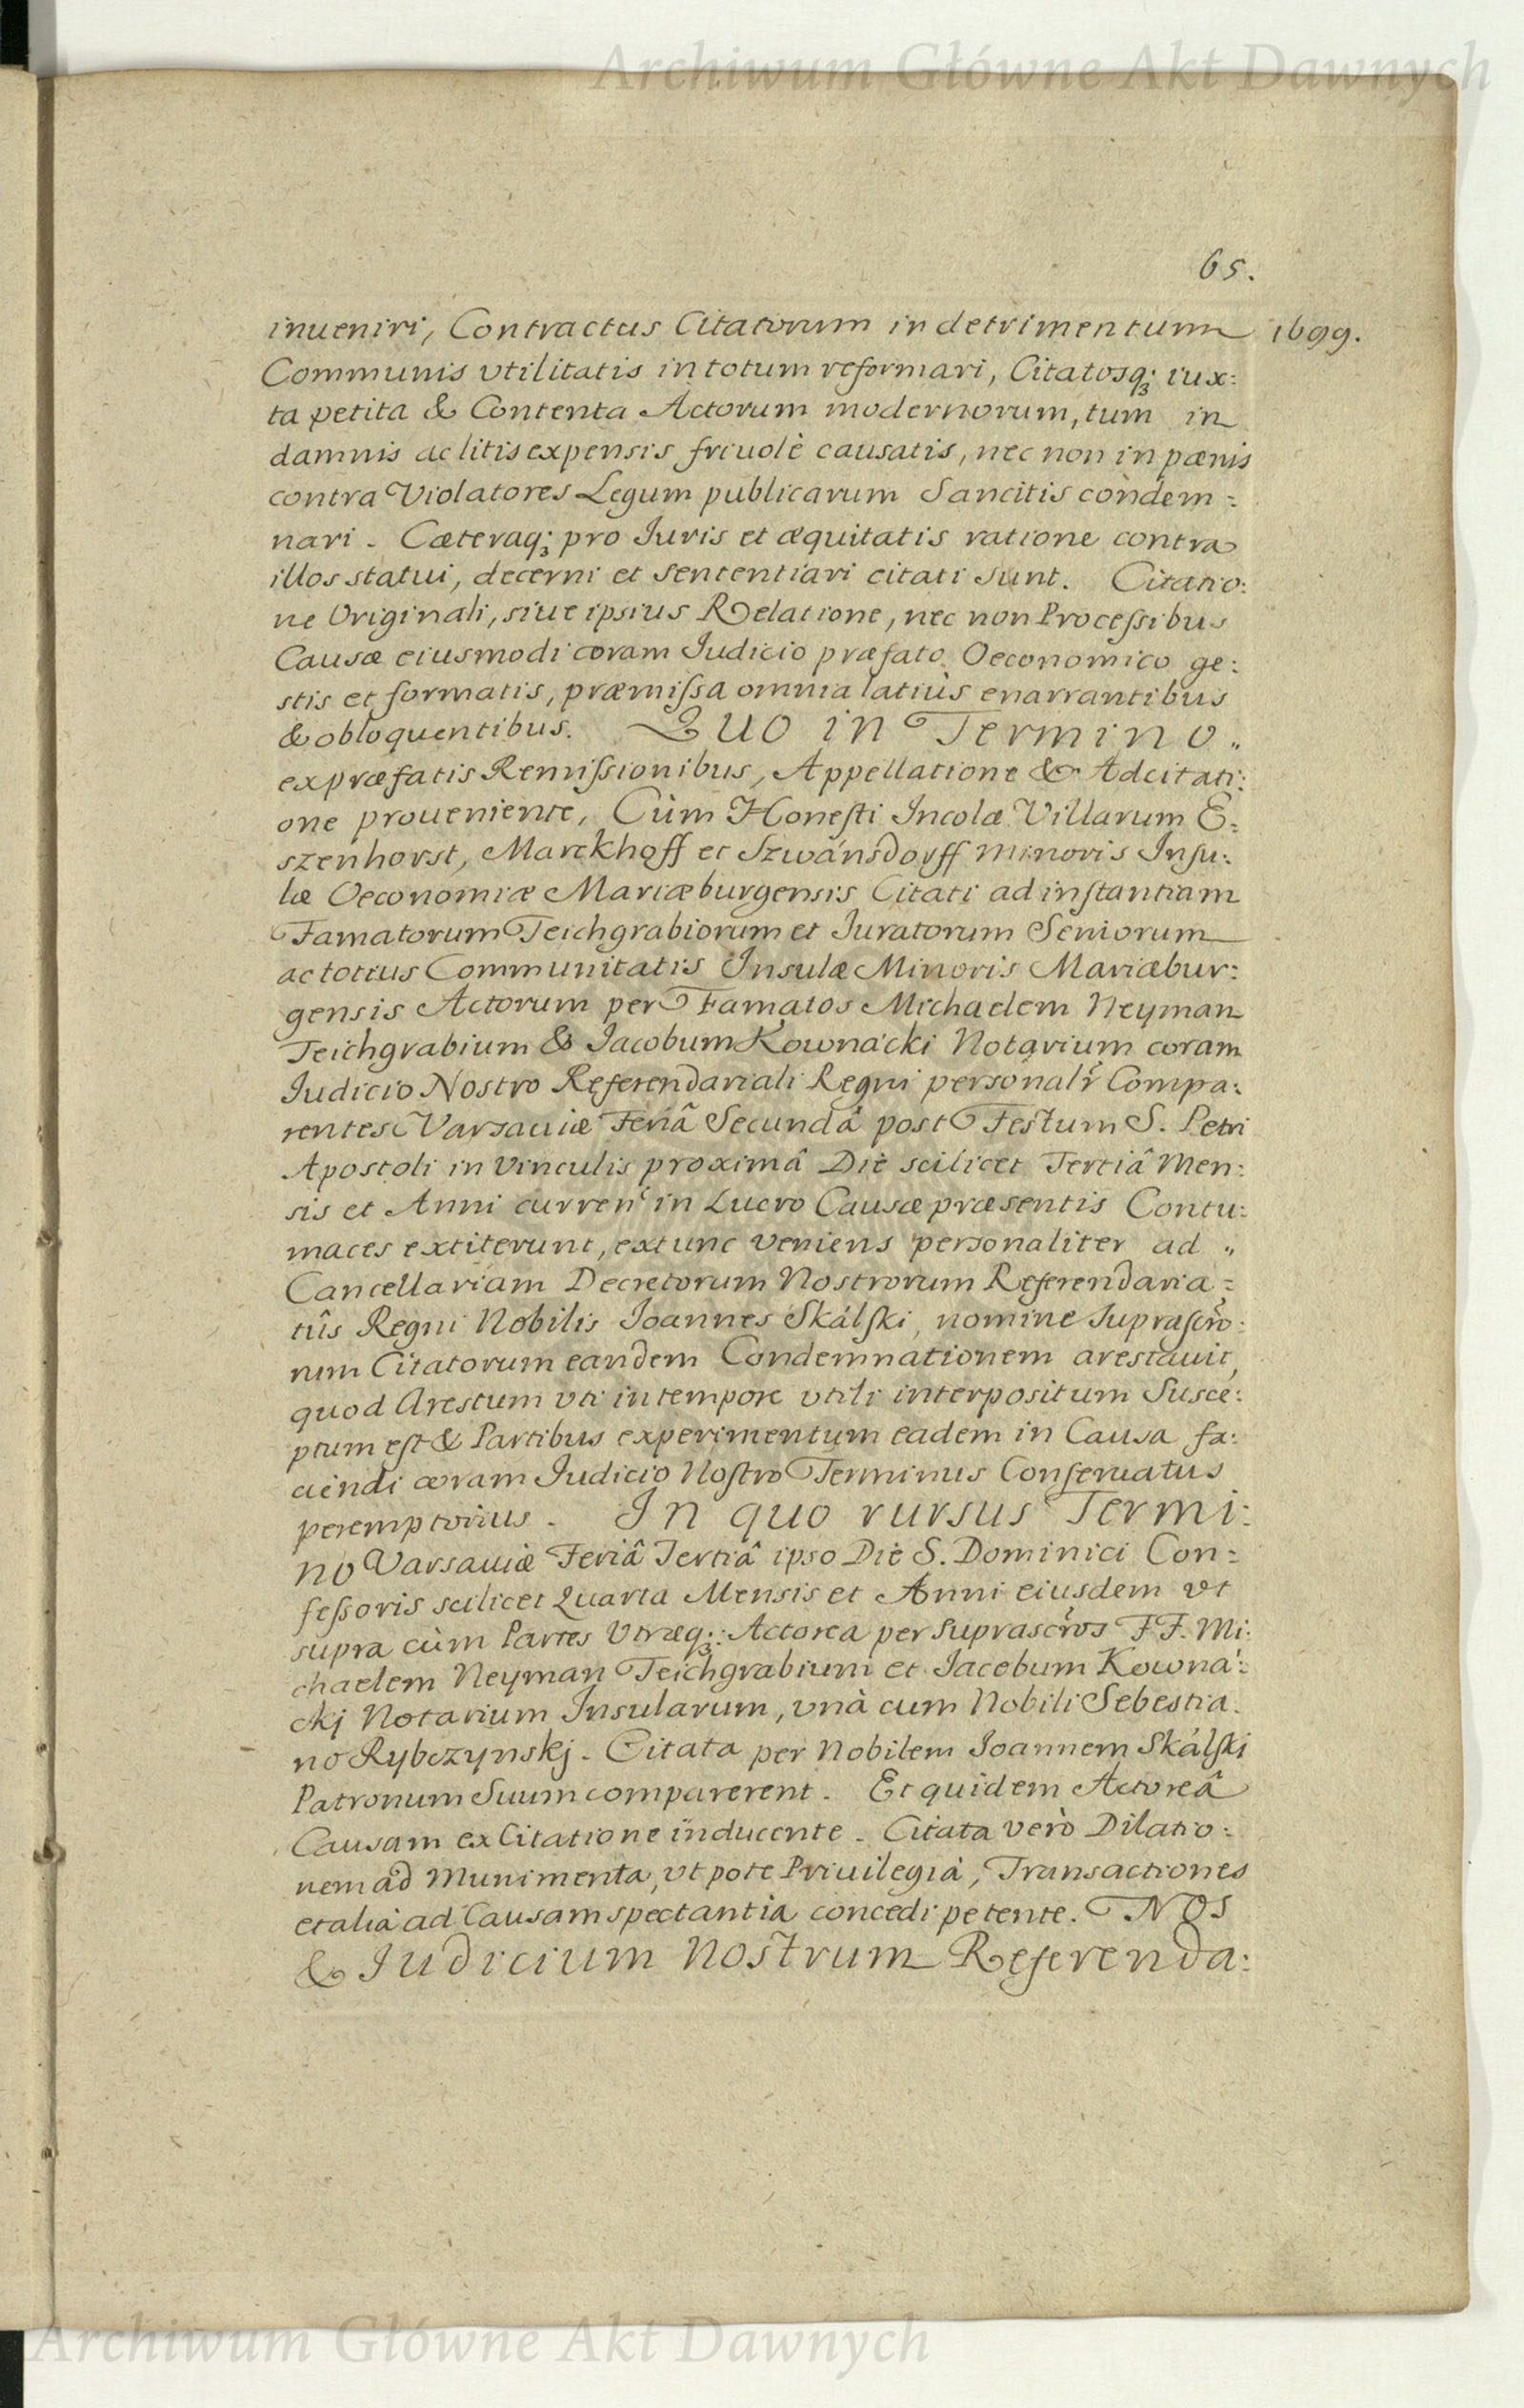 Archiwum Główne Akt Dawnych
65.
inueniri, Contractus Citatorum in detrimentum 1699.
Communis vtilitatis in totum reformari, Citatosq; iux:
ta petita & Contenta Actorum modernorum, tum in
damnis ac litis expensis friuolè causatis, nec non in pænis
contra Violatores Legum publicarum Sancitis condem =
nari. Cæteraq; pro Iuris et æquitatis ratione contra
illos statui, decerni et sententiari citati sunt. Citatio:
ne Originali, siue ipsius Relatione, nec non Processibus
Causæ eiusmodi coram Iudicio præfato Oeconomico ge:
stis et formatis, præmissa omnia latiùs enarrantibus
& obloquentibus. Quo in Termino „
ex præfatis Remissionibus, Appellatione & Adcitati:
one proueniente, Cùm Honesti Incolæ Villarum E=
szenhorst, Marckhoff et Szwánsdorff minoris Insu:
læ Oeconomiæ Mariæburgensis Citati ad instantiam
Famatorum Teichgrabiorum et Iuratorum Seniorum
ac totius Communitatis Insulæ Minoris Mariæbur:
gensis Actorum per Famatos Michaelem Neyman
Teichgrabium & Iacobum Kownácki Notarium coram
Iudicio Nostro Referendariali Regni personalr̃ Compa:
rentes Varsauiæ Feriâ Secundâ post Festum S. Petri
Apostoli in Vinculis proximâ Die scilicet Tertiâ Men:
sis et Anni curren͂ in Lucro Causæ præsentis Contu:
maces extiterunt, ex tunc veniens personaliter ad „
Cancellariam Decretorum Nostrorum Referendaria =
tûs Regni Nobilis Ioannes Skálski, nomine suprascr̃o:
rum Citatorum eandem Condemnationem arestauit,
quod Arestum vti in tempore vtili interpositum Susce:
ptum est & Partibus experimentum eadem in Causa fa:
ciendi coram Iudicio Nostro Terminus Conseruatus
peremptorius. In quo rursus Termi:
no Varsauiæ Feriâ Tertiâ ipso Die S. Dominici Con =
fessoris scilicet Quarta Mensis et Anni eiusdem vt
supra cùm Partes Vtræq;: Actorea per suprascr̃os FF. Mi:
chaelem Neyman Teichgrabium et Iacobum Kowná:
ckj Notarium Insularum, vnà cum Nobili Sebestia.
no Rybczynskj. Citata per Nobilem Ioannem Skálski
Patronum Suum comparerent. Et quidem Actoreâ
Causam ex Citatione inducente. Citata verò Dilatio =
nem ad Munimenta, vt pote Priuilegia, Transactiones
et alia ad Causam spectantia concedi petente. NOS
& Iudicium Nostrum Referenda:
Archiwum Główne Akt Dawnych